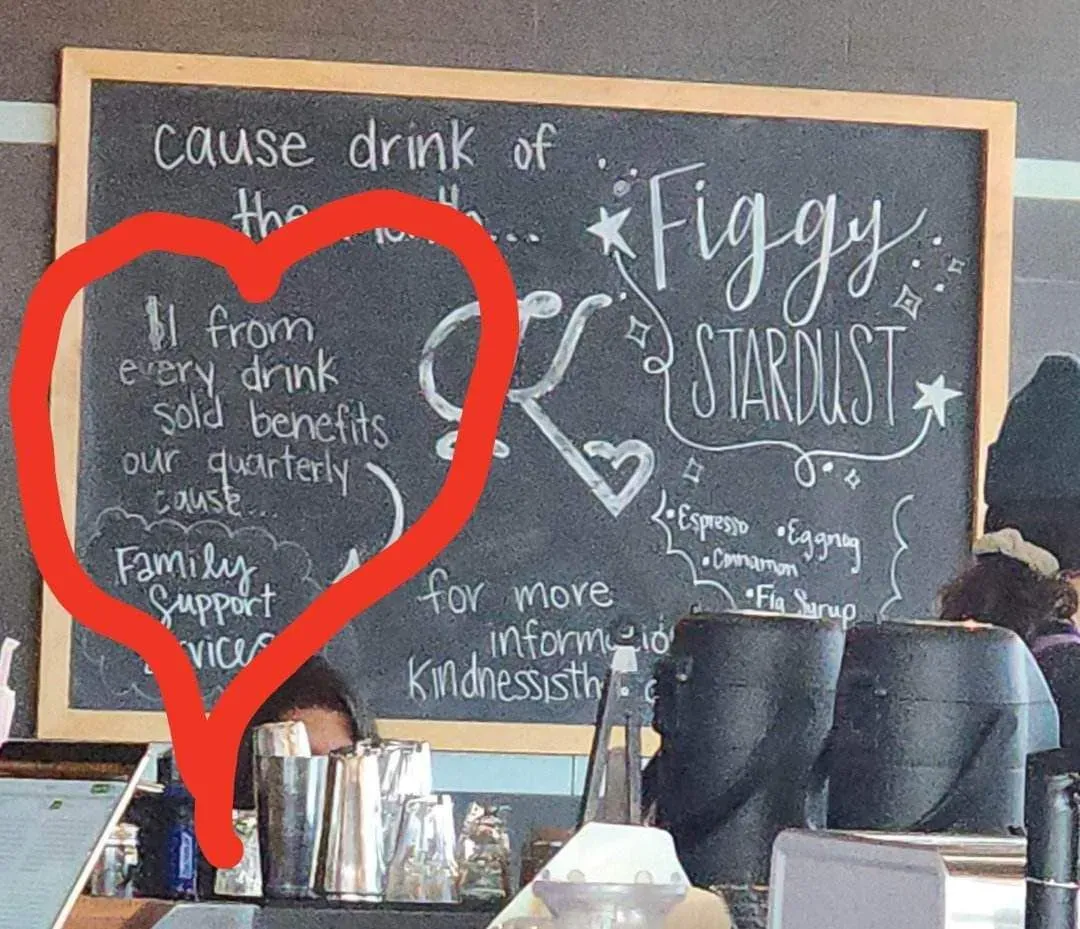 cause drink of
the month...
$1 from
every drink
sold benefits
our quarterly
cause...
Family
Support
Services
Figgy
STARDUST
•Espresso •Eggnog
•Cinnamon
•Fig Syrup
for more
information